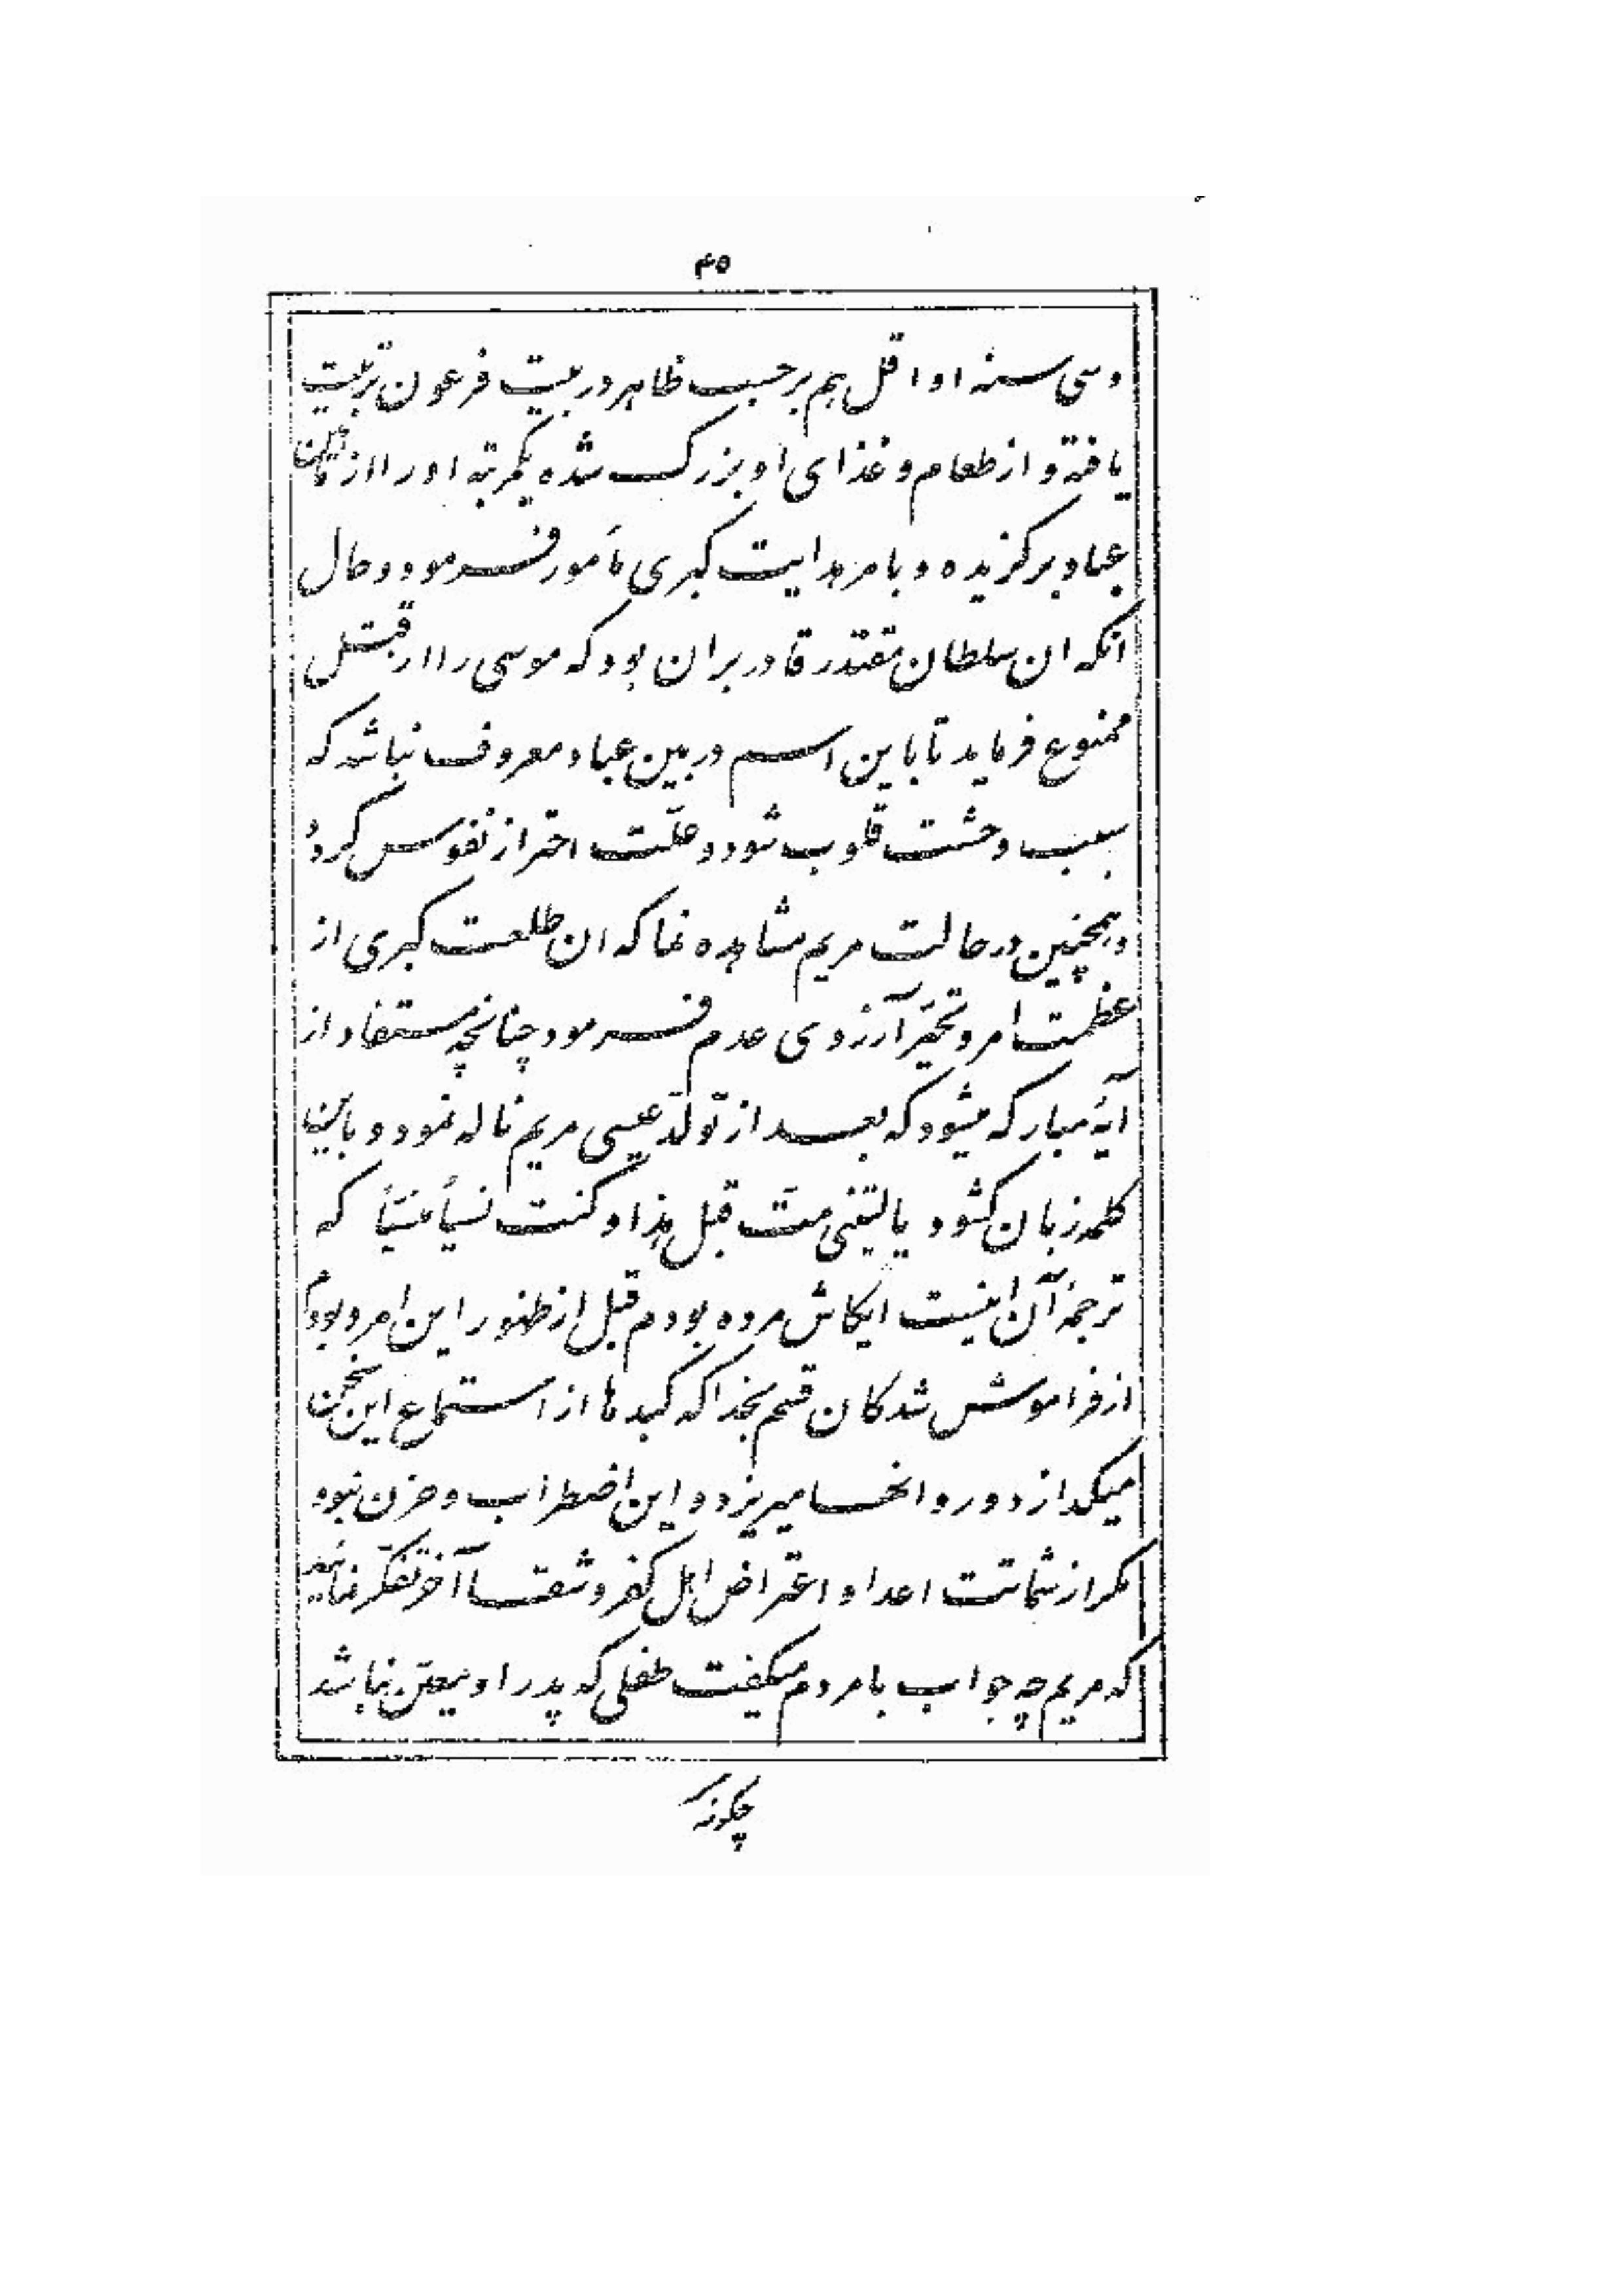 ۴۵
و سی سنه او اقل هم بر حسب ظاهر در بیت فرعون تربیت
یافته و از طعام و غذای او بزرگ شده یکمرتبه او را از مابین
عباد برگزیده و بامر هدایت کبری مأمور فرمود و حال
آنکه ان سلطان مقتدر قادر بر ان بود که موسی را از قتل
ممنوع فرماید تا باین اسم در بین عباد معروف نباشد که
سبب وحشت قلوب شود و علّت احتراز نفوس گردد
و همچنین در حالت مریم مشاهده نما که ان طلعت کبری از
عظمت امر و تحیّر آرزوی عدم فرمود چنانچه مستفاد از
آیهٔ مبارکه میشود که بعد از تولّد عیسی مریم ناله نمود و باین
کلمه زبان گشود یا لیتنی متّ قبل هذا و کنت نسیاً منسیّاً که
ترجمهٔ آن اینست ایکاش مرده بودم قبل از ظهور این امر و بودم
از فراموش شدگان قسم بخدا که کبدها از استماع این سخن
میگدازد و روانها میریزد و این اضطراب و حزن نبود
مگر از شماتت اعدا و اعتراض اهل کفر و شقا آخر تفکّر نمائید
که مریم چه جواب با مردم میگفت طفلی که پدر او معیّن نباشد
چگونه